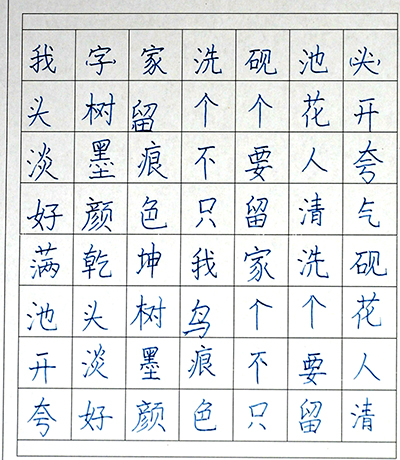 我(字)家洗砚池(头)
头树留个个花开
淡墨痕不要人夸
好颜色只留清气
满乾坤我家洗砚
池头树鸟个个花
开淡墨痕不要人
夸好颜色只留清